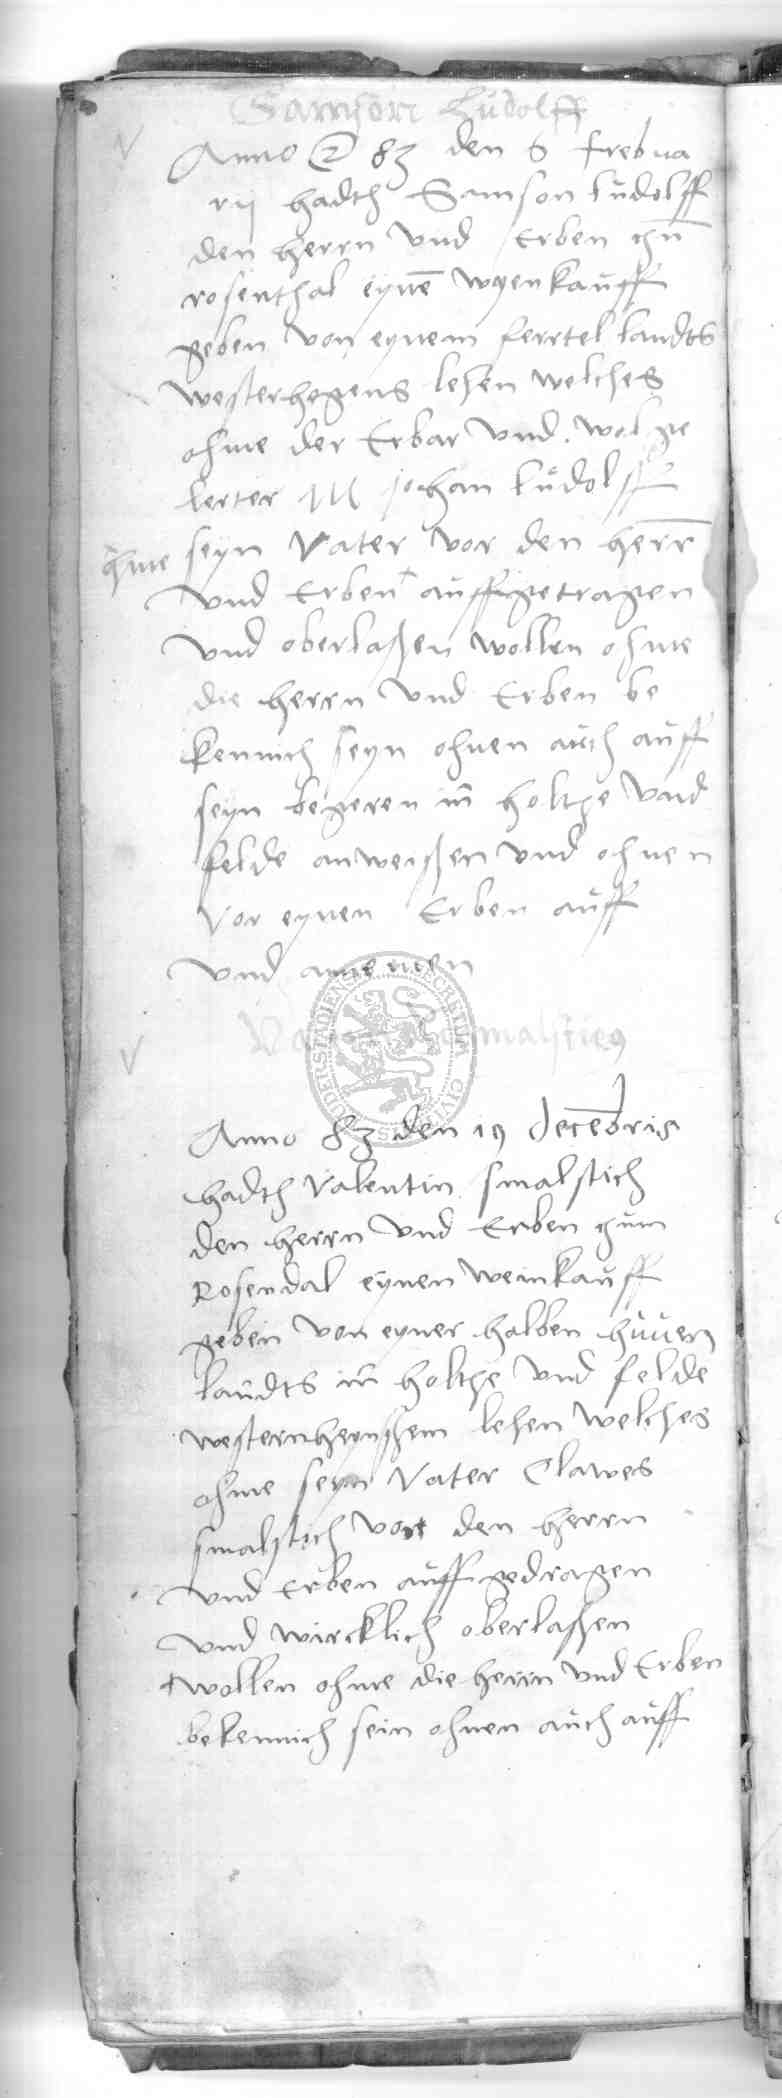 Samson Ludolff
Anno 83 den 6 frebua
rij hadth Samson ludolff
den herrn und Erben zu
rosenthal eynē wyenkauff
geben von eynem ferrtel landts
westerhegens lehen welches
ohme der Erbar und wolge
lerter M johan ludolff
seyn Vater vor den herr
und Erben + auffgetragen
ohme
und oberlaßen wollen ohme
die herrn und Erben be
kennich seyn ohnen auch auff
seyn begeren in holtze und
felde anweißen und ohnen
Vor eynen Erben auff
und annemen
Schmalstieg
Anno 83 den 19 decēbris
hadth Valentin smalstich
den herrn und Erben zum
Rosendal eynen weinkauff
geben von eyner halben huven
landts in holtze und felde
westernhernßem lehen welches
ohme seyn Vater Clawes
smalstich vor den herrn
und Erben auffgedragen
und wircklich oberlaßen
wollen ohme die herrn und Erben
bekennich sein ohnen auch auff